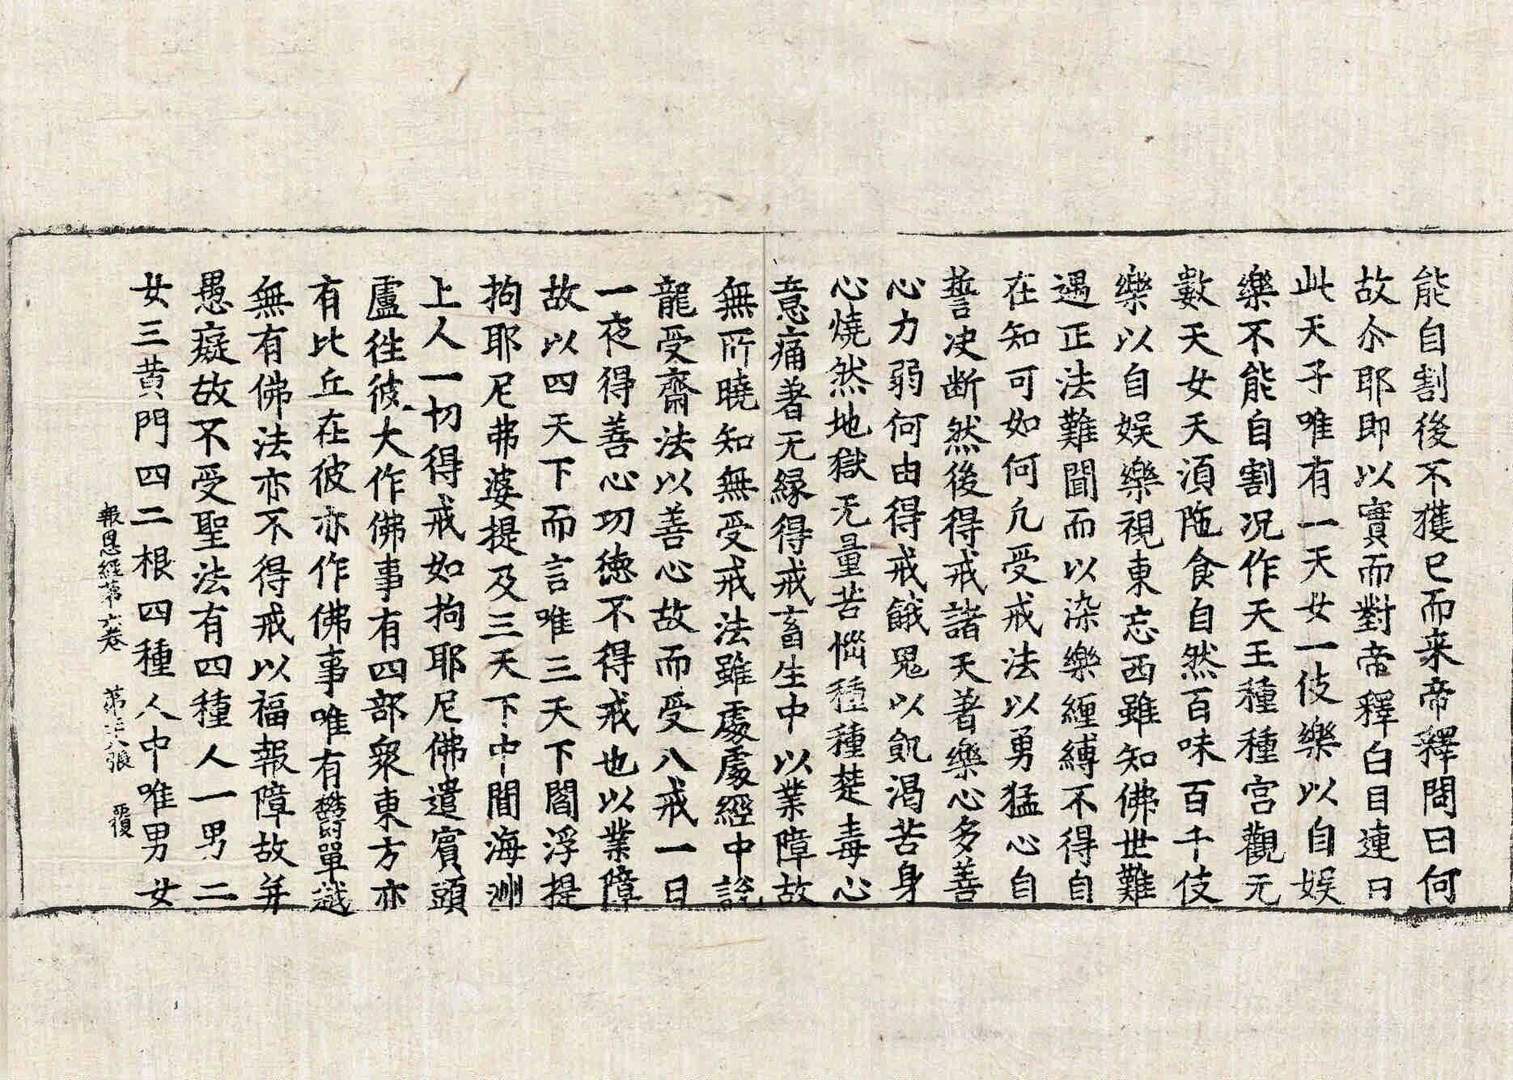 能自割後不獲已而来帝釋問曰何
故尒耶即以實而對帝釋白目連曰
此天子唯有一天女一伎樂以自娱
樂不能自割况作天王種種宮觀无
數天女天湏陁食自然百味百千伎
樂以自娱樂視東忘西雖知佛世難
遇正法難聞而以染樂纏縛不得自
在知可如何凢受戒法以勇猛心自
誓决断然後得戒諸天著樂心多善
心力弱何由得戒餓鬼以飢渴苦身
心燒然地獄无量苦惱種種楚毒心
意痛著无縁得戒畜生中以業障故
無所曉知無受戒法雖處處經中說
龍受齋法以善心故而受八戒一日
一夜得善心功德不得戒也以業障
故以四天下而言唯三天下閻浮提
拘耶尼弗婆提及三天下中間海洲
上人一切得戒如拘耶尼佛遣賓頭
盧徃彼大作佛事有四部衆東方亦
有比丘在彼亦作佛事唯有欝單越
無有佛法亦不得戒以福報障故并
愚癡故不受聖法有四種人一男二
女三黄門四二根四種人中唯男女
報恩經第六卷 第 八張